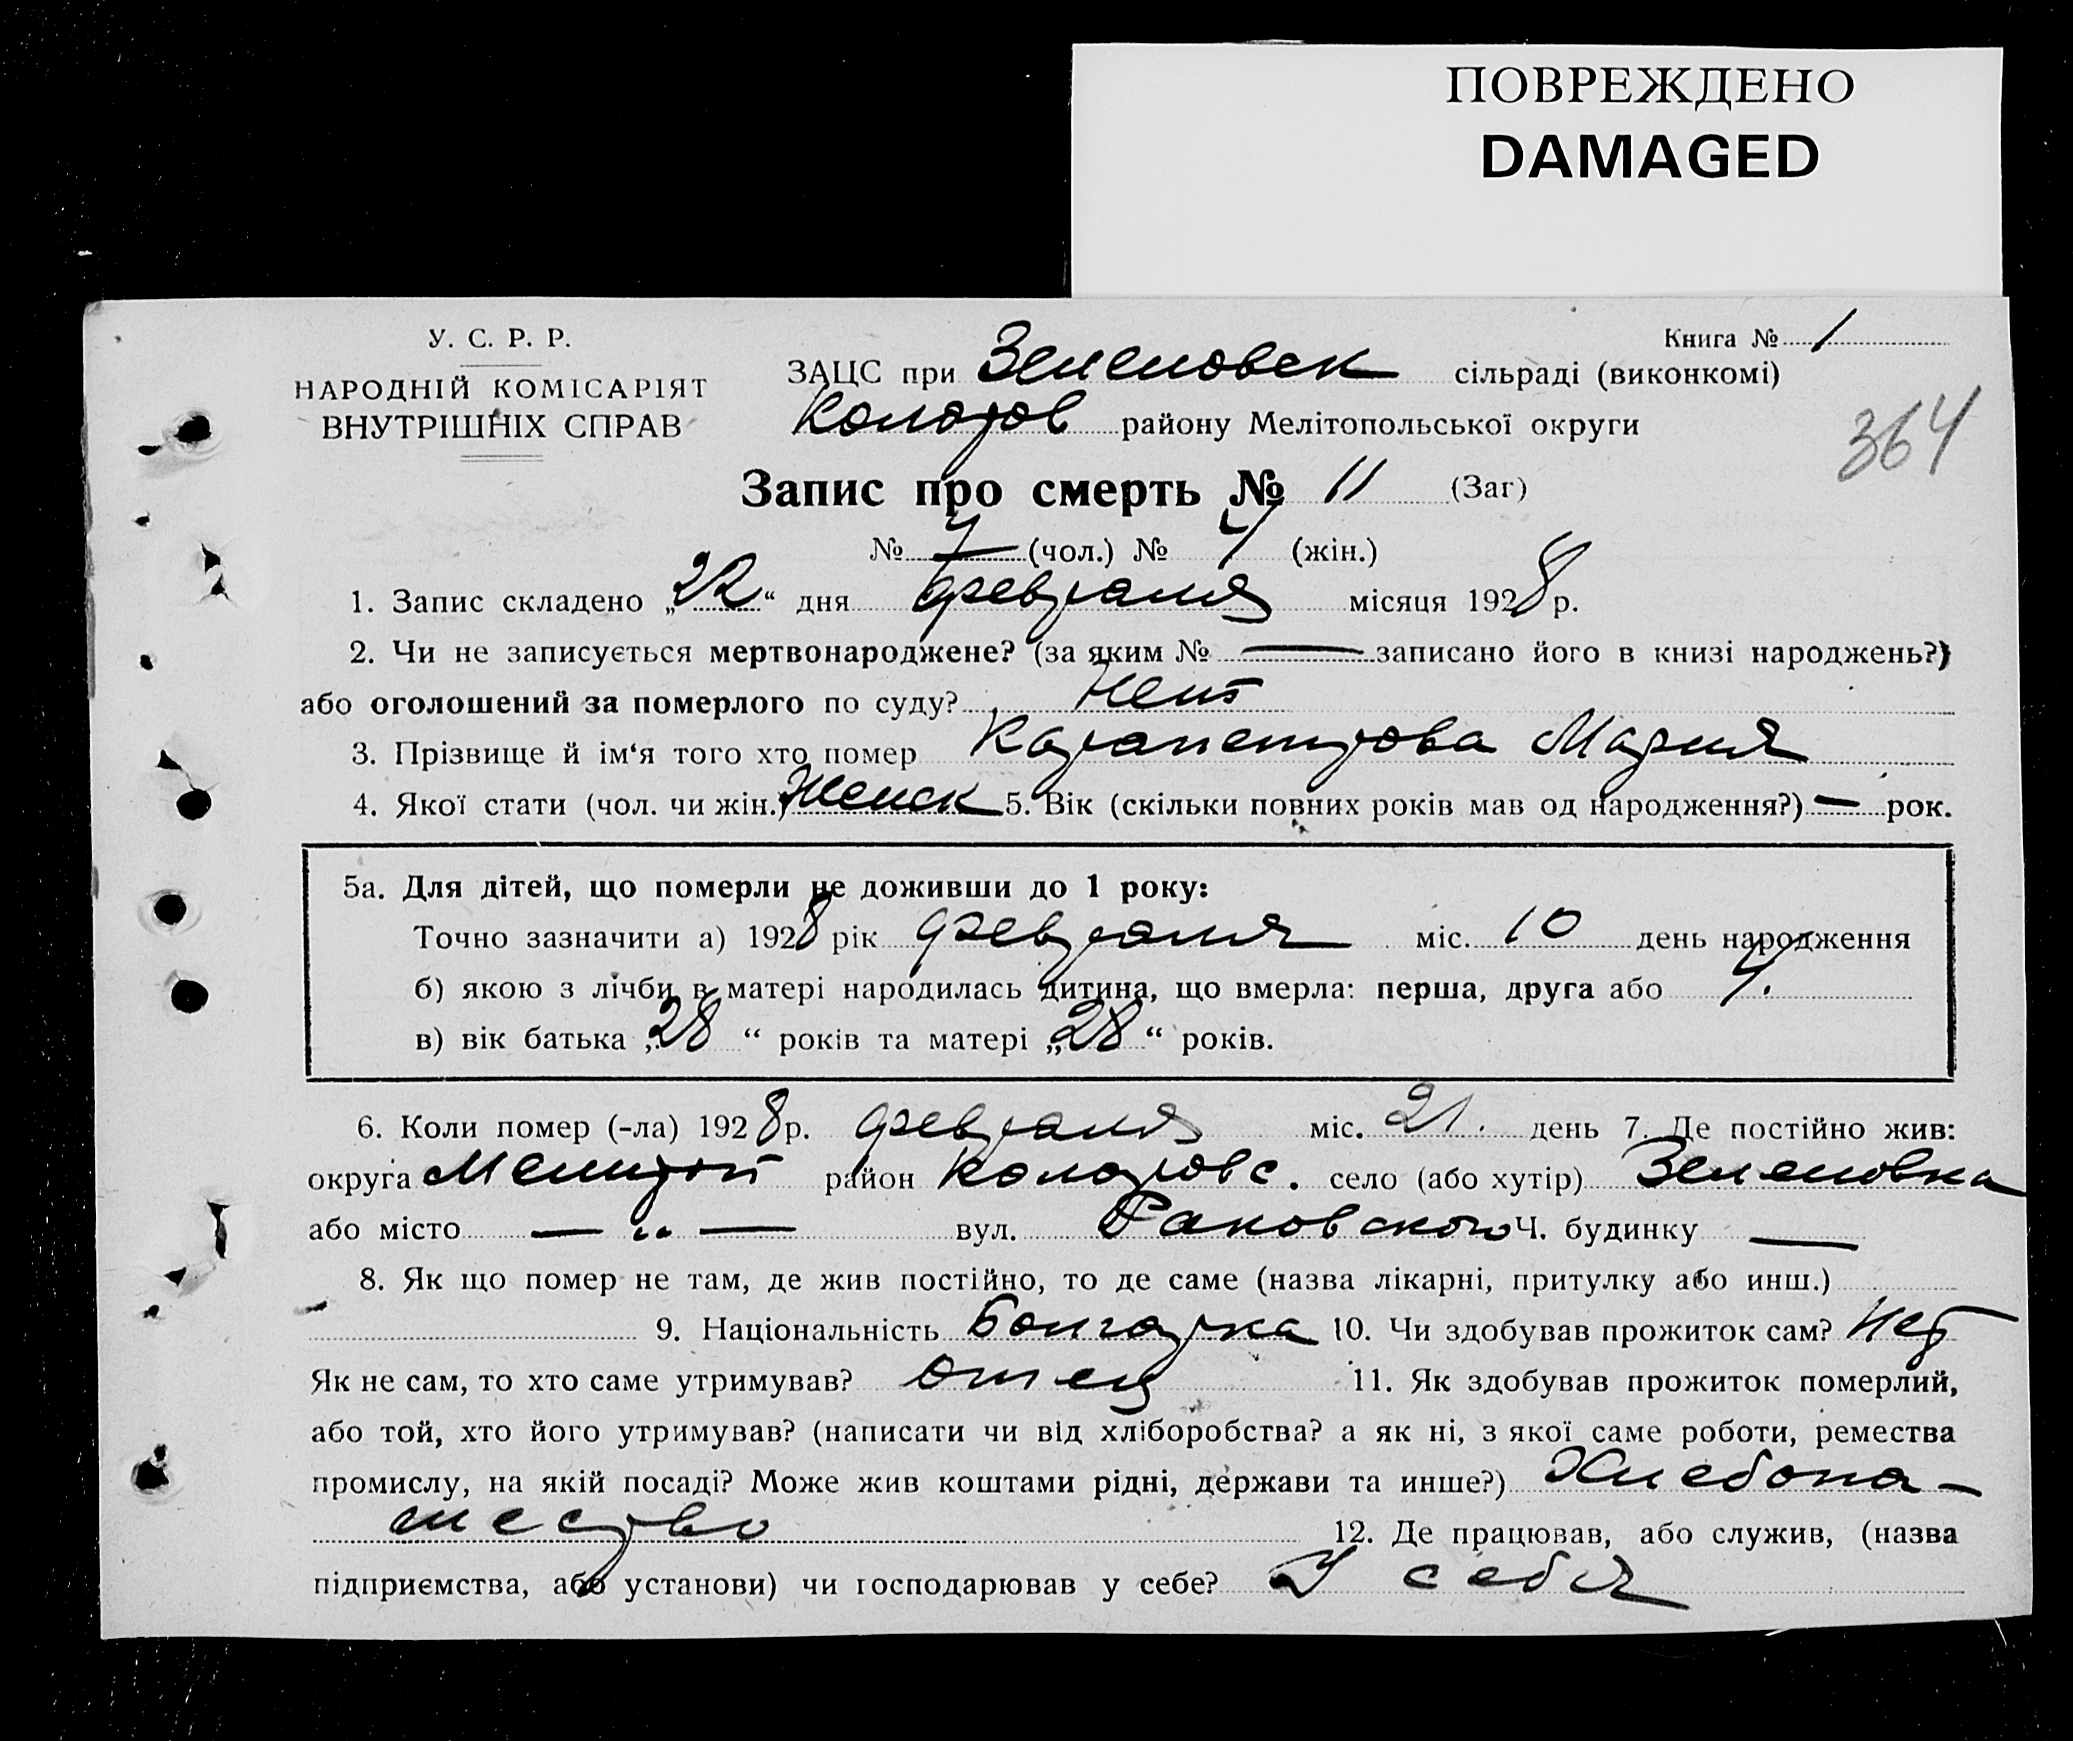 ПОВРЕЖДЕНО
DAMAGED
У. С. Р. Р.
НАРОДНІЙ КОМІСАРІЯТ
ВНУТРІШНІХ СПРАВ
Книга № 1
ЗАЦС при Зеленовск сільраді (виконкомі)
Коларов району Мелітопольської округи
364
Запис про смерть № 11 (Заг)
№ 7 (чол.) № 4 (жін.)
1. Запис складено „22“ дня февраля місяця 1928 р.
2. Чи не записується мертвонароджене? (за яким № — записано його в книзі народжень?)
або оголошений за померлого по суду? Нет
3. Прізвище й ім‘я того хто помер Карапетрова Мария
4. Якої стати (чол. чи жін.) Женск 5. Вік (скільки повних років мав од народження?) — рок.
5а. Для дітей, що померли не доживши до 1 року:
Точно зазначити а) 1928 рік февраля міс. 10 день народження
б) якою з лічби в матері народилась дитина, що вмерла: перша, друга або 4.
в) вік батька „28“ років та матері „28“ років.
6. Коли помер (-ла) 1928 р. февраля міс. 21. день 7. Де постійно жив:
округа Мелитоп район Коларовс. село (або хутір) Зеленовка
або місто — „ — вул. Раковского Ч. будинку —
8. Як що помер не там, де жив постійно, то де саме (назва лікарні, притулку або инш.)
— 9. Національність Болгарка 10. Чи здобував прожиток сам? Нет
Як не сам, то хто саме утримував? отец 11. Як здобував прожиток померлий,
або той, хто його утримував? (написати чи від хліборобства? а як ні, з якої саме роботи, ремества
промислу, на якій посаді? Може жив коштами рідні, держави та инше?) Хлебопа-
шество 12. Де працював, або служив, (назва
підприємства, або установи) чи господарював у себе? У себя